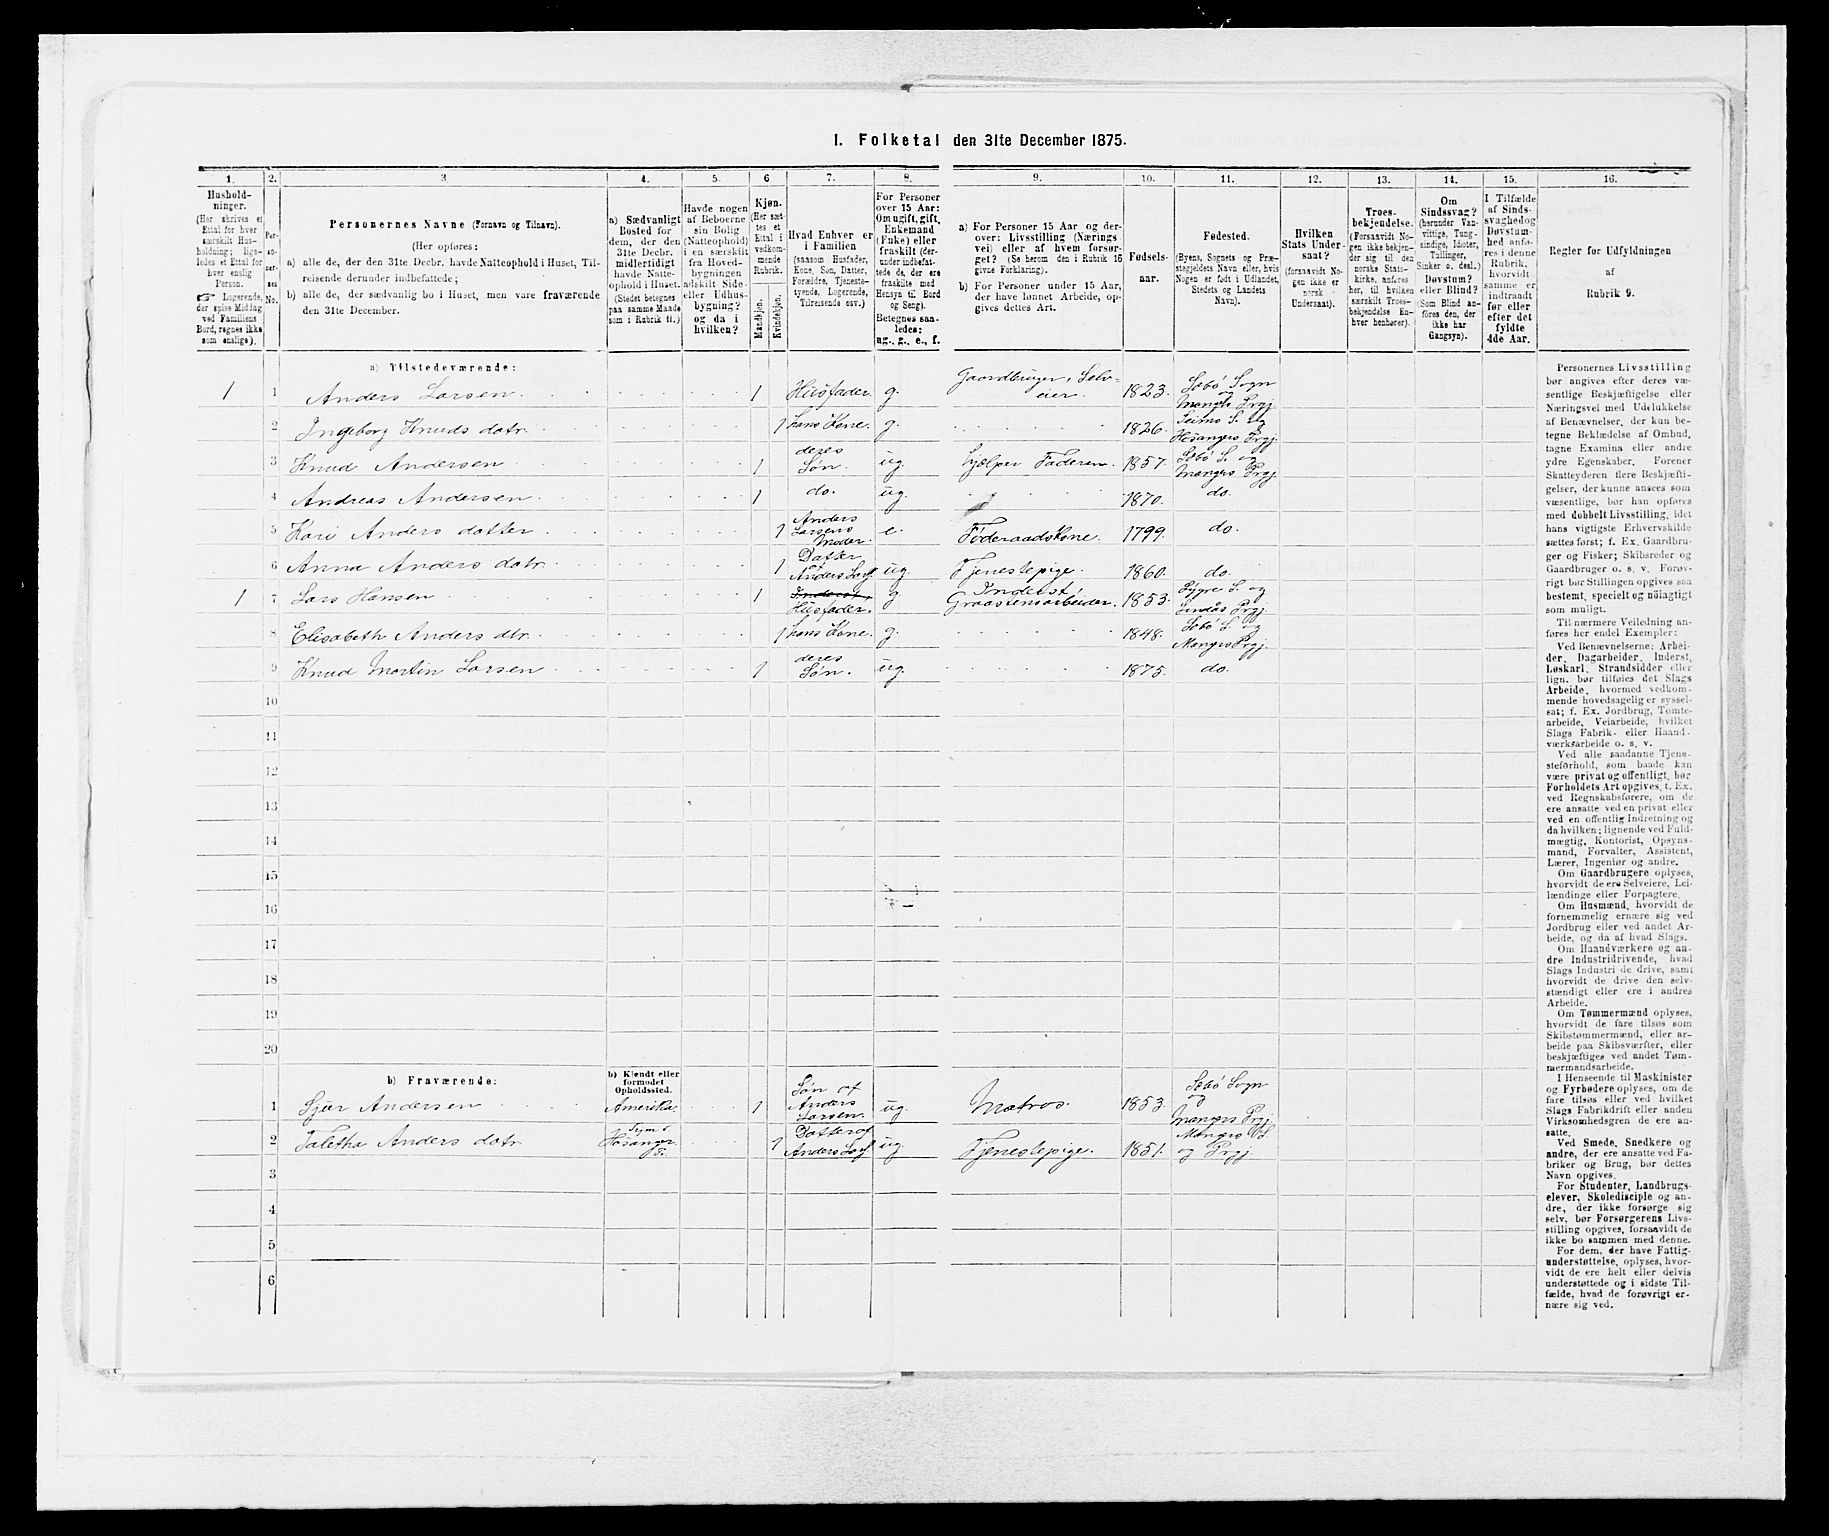 I. Folketal den 31te December 1875.
1. 2. 3. 4. 5. 6 7. 8. 9. 10. 11. 12. 13. 14. 15. 16.
Husholdninger.
(Her skrives et
Ettal for hver
særskilt Husholdning; ligeledes et Ettal for
hver enslig
Person.
☞ Logerende,
der spise Middag
ved Familiens
Bord, regnes ikke
som enslige).
Personernes No.
Personernes Navne (Fornavn og Tilnavn).
(Her opføres:
a) alle de, der den 31te Decbr. havde Natteophold i Huset, Tilreisende derunder indbefattede;
b) alle de, der sædvanlig bo i Huset, men vare fraværende
den 31te December.
a) Sædvanligt
Bosted for
dem, der den
31te Decbr.
midlertidigt
havde Natteophold i Huset.
(Stedet betegnes
paa samme Maade
som i Rubrik 11.)
Havde nogen
af Beboerne
sin Bolig
(Natteophold)
i en særskilt
fra Hovedbygningen
adskilt Side-
eller Udhusbygning?
og da i
hvilken?
Kjøn.
(Her sættes et
Ettal i
vedkommende
Rubrik.
Mandkjøn.
Kvindekjøn.
Hvad Enhver er
i Familien
(saasom Husfader,
Kone, Søn, Datter,
Forældre, Tjenestetyende, Logerende,
Tilreisende osv.)
For Personer
over 15 Aar:
Om ugift, gift,
Enkemand
(Enke) eller
fraskilt (derunder indbefattede de, der ere
fraskilte med
Hensyn til Bord
og Seng).
Betegnes saaledes:
ug., g., e., f.
a) For Personer 15 Aar og derover: Livsstilling (Næringsvei) eller af hvem forsørget? (Se herom den i Rubrik 16
givne Forklaring).
b) For Personer under 15 Aar,
der have lønnet Arbeide, opgives dettes Art.
Fødselsaar.
Fødested.
(Byens, Sognets og Præstegjeldets Navn eller, hvis
Nogen er født i Udlandet,
Stedets og Landets
Navn).
Hvilken
Stats Undersaat?
(forsaavidt Nogen ikke er
norsk
Undersaat).
Troesbekjendelse.
(Forsaavidt Nogen ikke bekjender sig til den
norske Statskirke, anføres
her, til hvilken
særskilt Troesbekjendelse Enhver henhører).
Om
Sindssvag?
(herunder Vanvittige, Tungsindige, Idioter,
Tullinger,
Sinker o. desl.)
Døvstum?
eller Blind?
(Som Blind anføres den, der
ikke har
Gangsyn).
I Tilfælde
af Sindssvaghed og
Døvstumhed anføres i denne
Rubrik,
hvorvidt
samme er
indtraadt
før eller
efter det
fyldte
4de Aar.
Regler for Udfyldningen
af
Rubrik 9.
a) Tilstedeværende:
1 1 Anders Larsen 1 Husfader g. Gaardbruger, Selveier. 1823. Sæbø Sogn og Mangers Prgj.
2 Ingeborg Knuds datr. 1 hans Kone. g. 1826. Seims S. og Hosangers Prgj.
3 Knud Andersen 1 deres Søn. ug. hjælper Faderen. 1857. Sæbø S. og Mangers Prgj.
4 Andreas Andersen 1 do. ug. 1870. do.
5 Kari Anders datter 1 Anders Larsens Moder. e. Føderaadskone. 1799. do.
6 Anna Anders datr. 1 Datter af Anders Lars. ug. Tjenestepige. 1860. do.
1 7 Lars Hansen 1 Inderst, Husfader. g Inderst, Graastensarbeider. 1853. Lygre S. og Lindås Prgj.
8 Elisabeth Anders dtr. 1 hans Kone. g. 1848. Sæbø S. og Mangers Prgj.
9 Knud Martin Larsen 1 deres Søn. ug. 1875. do.
10
11
12
13
14
15
16
17
18
19
20
b) Fraværende:
b) Kjendt eller
formodet
Opholdssted.
1 Sjur Andersen Amerika. 1 Søn af Anders Larsen. ug. Matros. 1853. Sæbø Sogn og Mangers Prgj.
2 Taletha Anders datr. Hosanger 1 Datter af Anders Lars. ug. Tjenestepige. 1851. Mangers S. og Prgj.
3
4
5
6
Personernes Livsstilling
bør angives efter deres væsentlige Beskjæftigelse eller
Næringsvei med Udelukkelse
af Benævnelser, der kun betegne Beklædelse af Ombud,
tagne Examina eller andre
ydre Egenskaber. Forener
Skatteyderen flere Beskjæftigelser, der kunne ansees som
væsentlige, bør han opføres
med dobbelt Livsstilling, idet
hans vigtigste Erhvervskilde
sættes først; f. Ex. Gaardbruger og Fisker; Skibsreder og
Gaardbruger o. s. v. Forøvrigt bør Stillingen opgives saa
bestemt, specielt og nøiagtigt
som muligt.
Til nærmere Veiledning anføres her endel Exempler:
Ved Benævnelserne: Arbeider, Dagarbeider, Inderst,
Løskarl, Strandsidder eller
lign. bør tilføies det Slags
Arbeide, hvormed vedkommende hovedsagelig er sysselsat; f. Ex. Jordbrug, Tomtearbeide, Veiarbeide, hvilket
Slags Fabrik- eller Haandværksarbeide o. s. v.
Ved alle saadanne Tjenesteforhold, som baade kan
være privat og offentligt, bør
Forholdets Art opgives, t. Ex.
ved Regnskabsførere, om de
ere ansatte ved en privat eller
ved en offentlig Indretning og
da hvilken; lignende ved Fuldmægtig, Kontorist, Opsynsmand, Forvalter, Assistent,
Lærer, Ingeniør og andre.
Om Gaardbrugere oplyses,
hvorvidt de ere Selveiere, Leilændinge eller Forpagtere.
Om Husmænd, hvorvidt de
fornemmelig ernære sig ved
Jordbrug eller ved andet Arbeide, og da af hvad Slags.
Om Haandværkere og andre Industridrivende, hvad
Slags Industri de drive, samt
hvorvidt de drive den selvstændigt eller ere i andres
Arbeide.
Om Tømmermænd oplyses,
hvorvidt de fare tilsøs som
Skibstømmermænd, eller arbeide paa Skibsværfter, eller
beskjæftiges ved andet Tømmermandsarbeide.
I Henseende til Maskinister
og Fyrbødere oplyses, om de
fare tilsøs eller ved hvilket
Slags Fabrikdrift eller anden
Virksomhedsgren de ere ansatte.
Ved Smede, Snedkere og
andre, der ere ansatte ved Fabriker og Brug, bør dettes
Navn opgives.
For Studenter, Landbrugselever, Skoledisciple og andre, der ikke forsørge sig
selv, bør Forsørgerens Livsstilling opgives, forsaavidt de
ikke bo sammen med denne.
For dem, der have Fattigunderstøttelse, oplyses, hvorvidt de ere helt eller delvis
understøttede og i sidste Tilfælde, hvad de forøvrigt ernære sig ved.